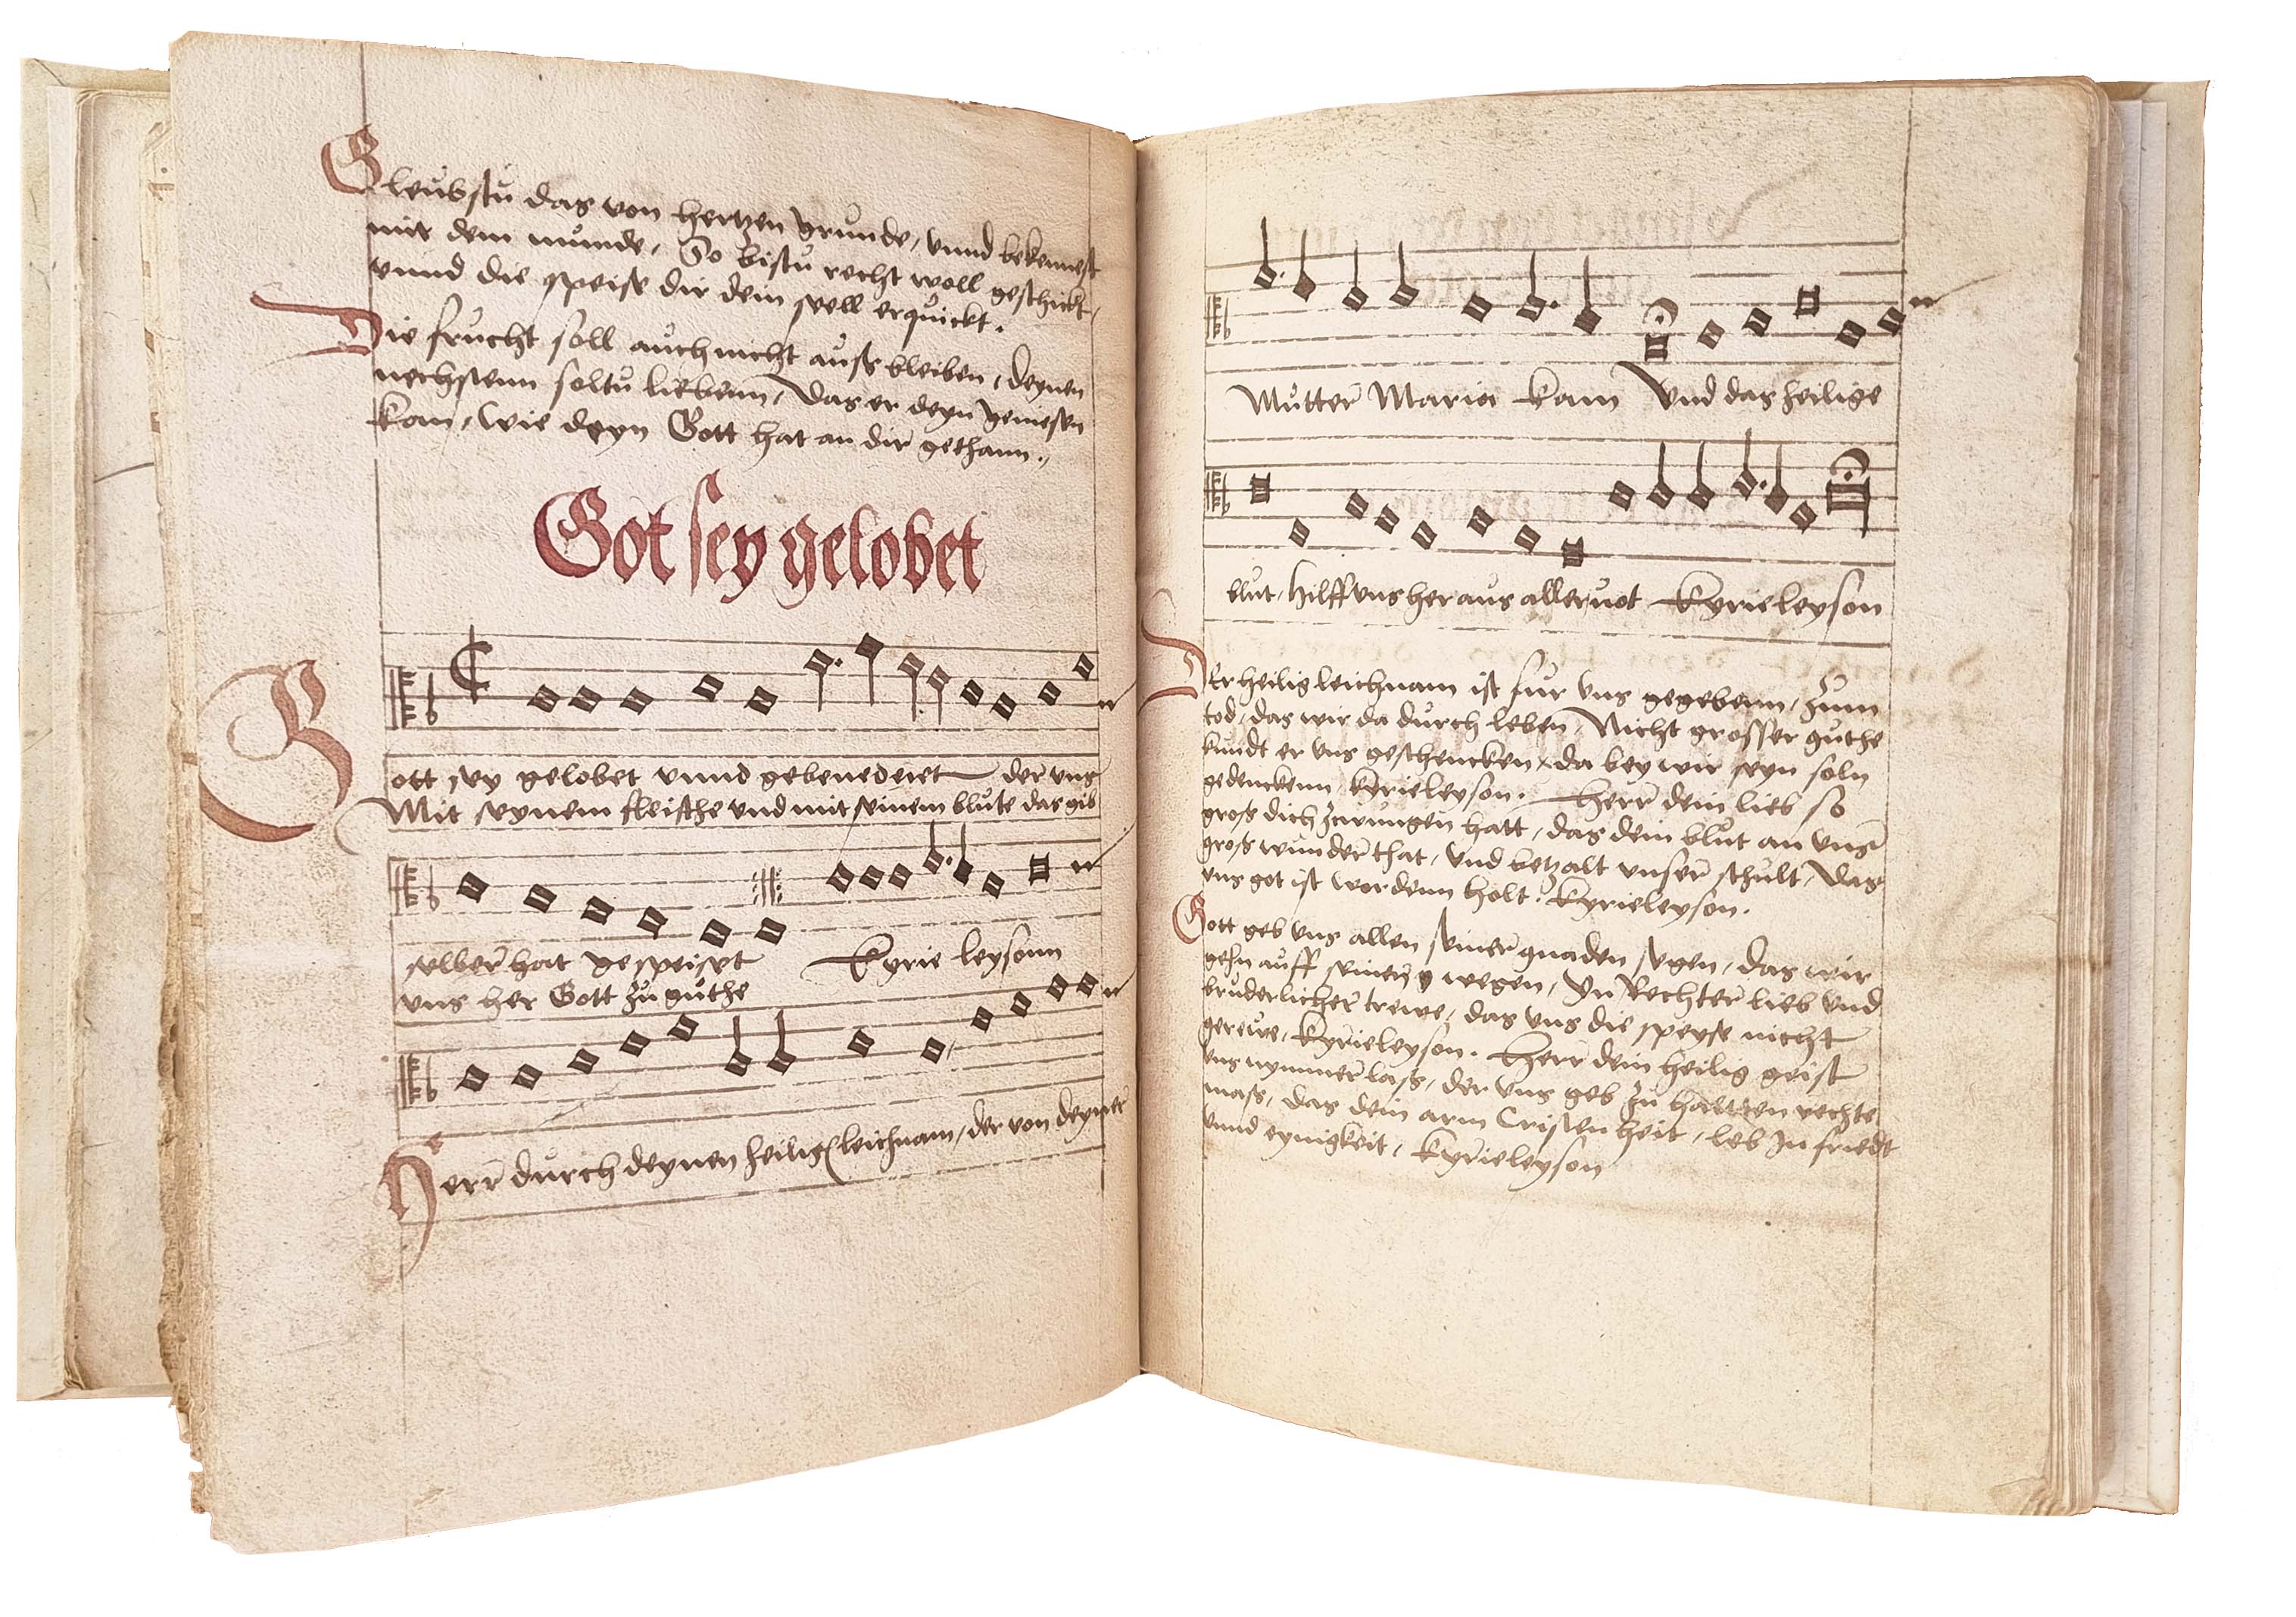 Gleubstu das von hertzen grunde, vnnd bekennest
mit dem munde, So bistu recht woll geschickt,
vnnd die speise dir dein seell erquickt.
Die frucht soll auch nicht auß bleiben, deynen
nechstenn soltu liebenn, Das er deyn geniesen
kan, Wie deyn Gott hat an dir gethann.
Got sey gelobet
Gott sey gelobet vnnd gebenedeiet der vns
Mit seynem fleische vnd mit seinem blute das gib
selber hat gespeiset Kyrie leysonn
vns her Gott zu guthe
Herr durch deynen heilig leichnam, der von deyner
Mutter Maria kam Vnd das heilige
blut, hilff vns her aus aller not Kyrieleyson
Der heilig leichnam ist fur vns gegebenn, zum
tod, das wir da durch leben, Nicht grosser guthe
kundt er vns geschencken, da bey wir seyn soln
gedenckenn, kyrieleyson. Herr dein lieb so
groß dich zwungen hatt, das dein blut an vns
groß wunder that, vnd betzalt vnser schult, Das
vns got ist wordenn holt. Kyrieleyson.
Gott geb vns allen seiner gnaden segen, das wir
gehn auff seinen wegen, Yn Rechter lieb vnd
bruderlicher trewe, das vns die speyse nicht
gerewe, Kyrieleyson. Herr dein heilig geist
vns nymmer laß, der vns geb zu haltten rechte
maß, das dein arm Cristenheit, leb in friedt
vnnd eynigkeit, Kyrieleyson